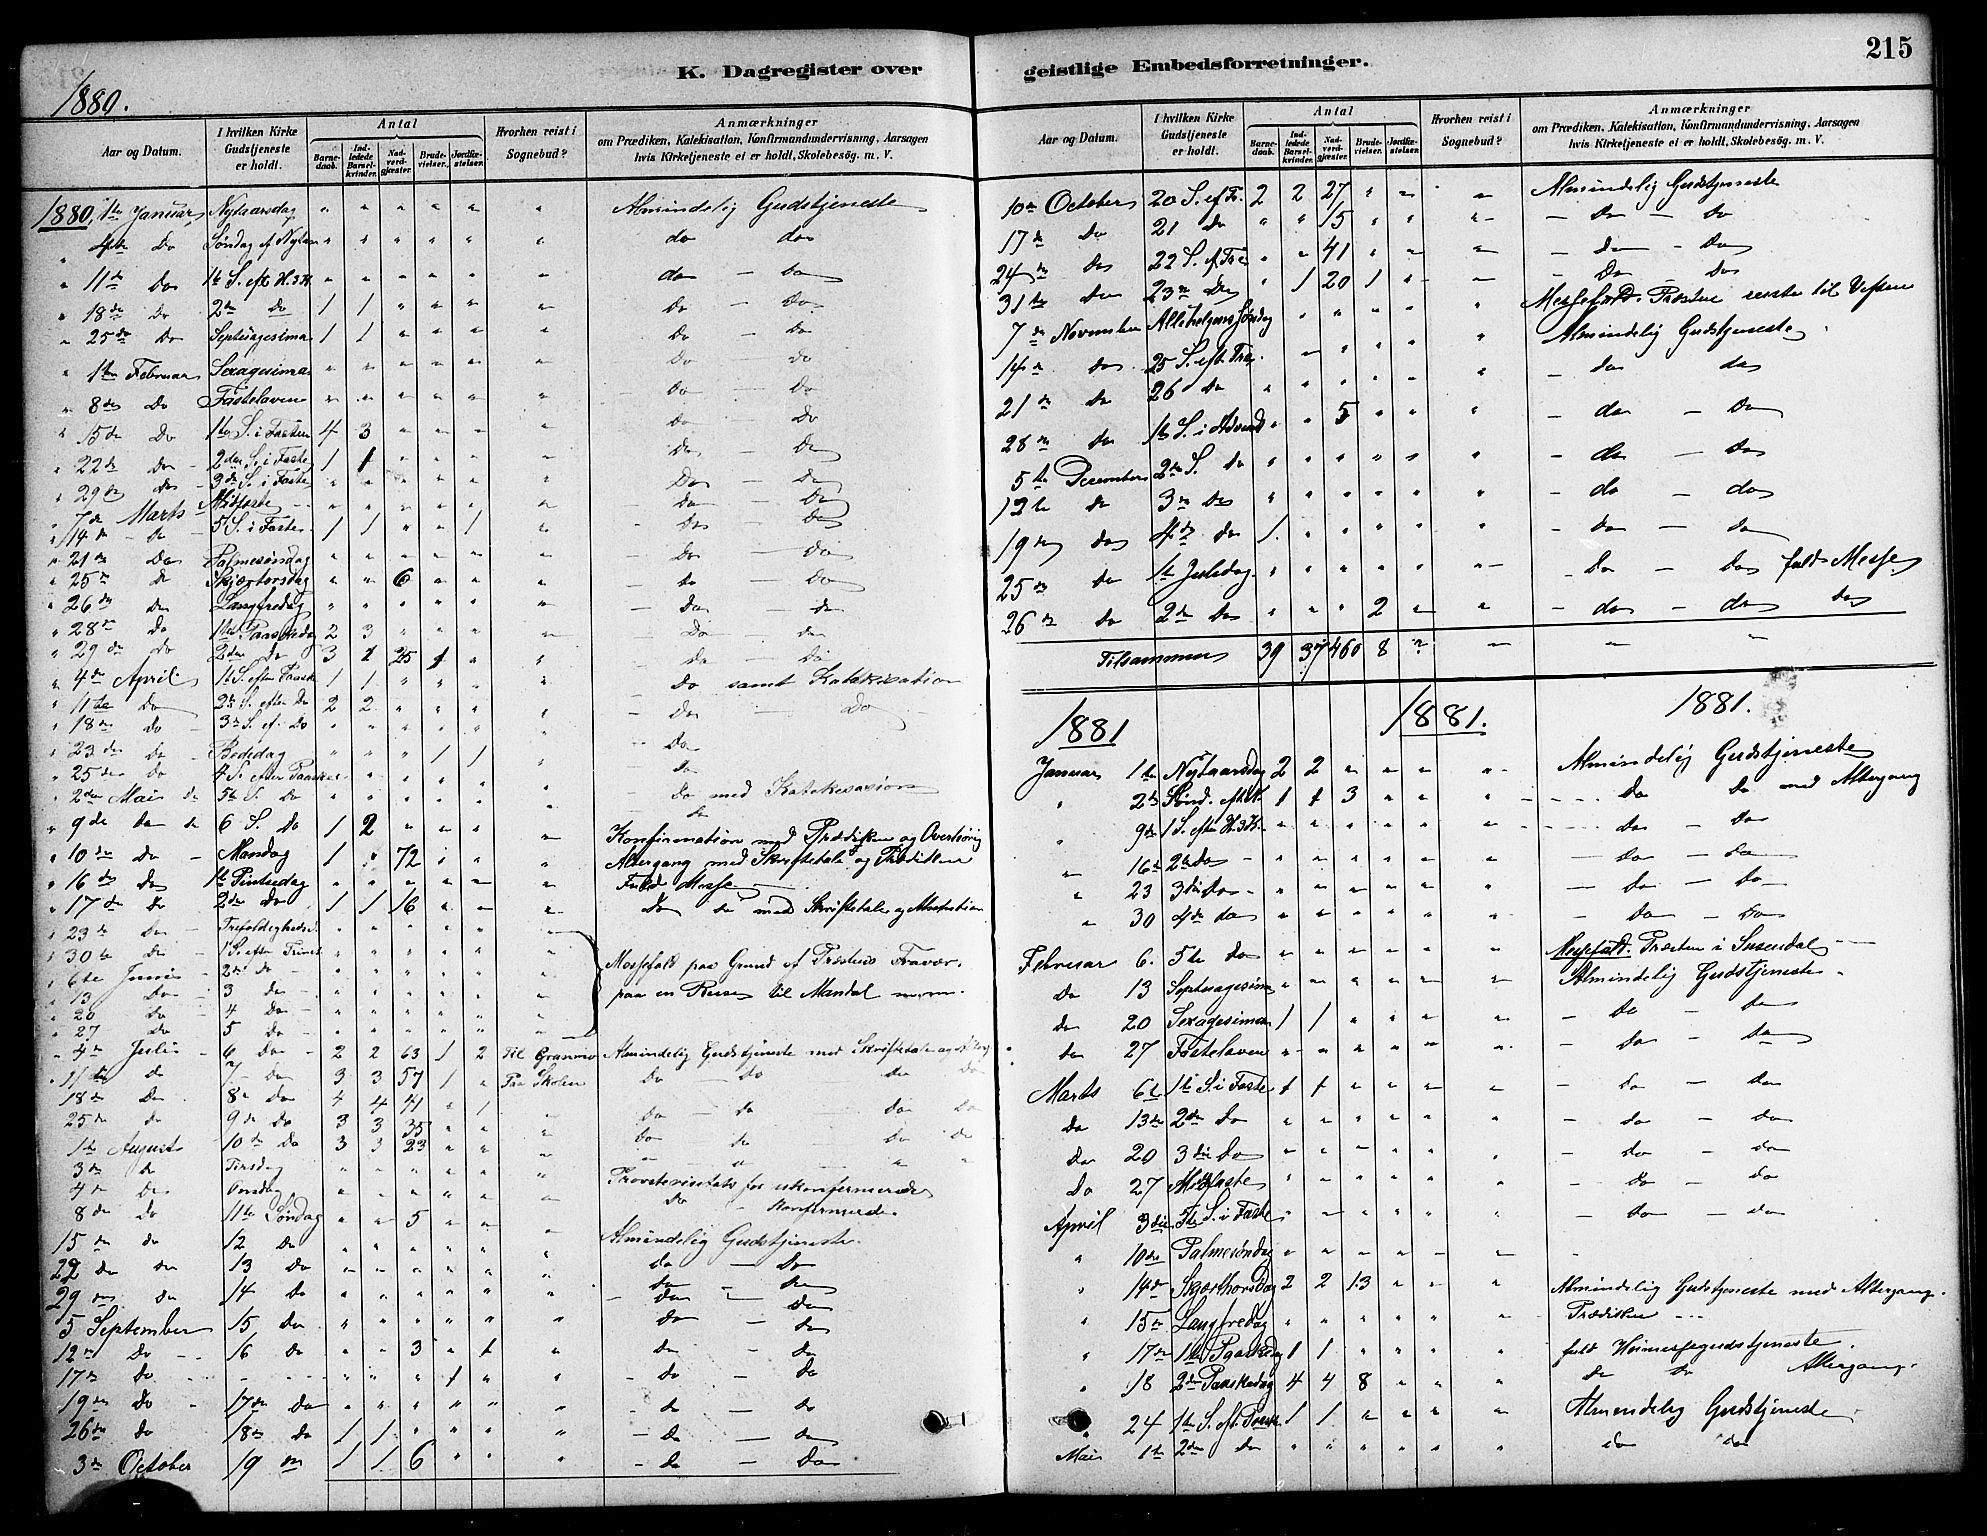 215
K. Dagregister over geistlige Embedsforretninger.
1880.
Aar og Datum. I hvilken Kirke Gudstjeneste er holdt. Antal Barnedaab. Indledede Barselkvinder. Nadverdgjæster. Brudevielser. Jordfæstelser. Hvorhen reist i Sognebud? Anmærkninger om Prædiken, Katekisation, Konfirmandundervisning, Aarsagen hvis Kirketjeneste ei er holdt, Skolebesøg. m. V.
1880, 1te Januar Nytaarsdag " " " " " " Almindelig Gudstjeneste
" 4de Do Søndag ef Nytaar " " " " " " do do
" 11te Do 1te S. eft H. 3 K. " " " " " " do — Do
" 18de Do 2den Do 1 1 " " " " Do — Do
" 25de Do Septuagesima 1 1 " " " " Do — Do
" 1te Februar Sexagesima " " " " " " Do — Do
" 8de Do Fastelaven " " " " " " Do — Do
" 15de Do 1te S. i Fasten 4 3 " " " " Do — Do
" 22de Do 2den S. i Faste 1 1 " " " " Do — Do
" 29de Do 3die S. i Faste " " " " " " Do — Do
" 7de Marts Midfaste " " " " " " Do — Do
" 14de Do 5te S. i Faste 1 1 " " 1 " Do — Do
" 21de Do Palmesøndag " " " " " " Do — Do
" 25de Do Skjærtorsdag " " 6 " " " Do — Do
" 26de Do Langfredag " " " " " " Do — Do
" 28de Do 1ste Paaskedag 2 3 " " " " Do — Do
" 29de Do 2den Do 3 1 25 1 " " Do — Do
" 4de April 1te S. efter Paaske 1 1 " " " " Do samt Katekisation
" 11te Do 2den S. efter Do 2 2 " " " " Do — Do
" 18de Do 3die S. ef. Do " " " " " " Do
" 23de Do Bededag " " " 1 1 " Do
" 25de Do 4 S. efter Paaske " " " " " "
" 2den Mai 5te S. Do " " " " " " Do med Katekisation
" 9de Do 6 S. Do 1 2 " " " " Konfirmation med Prædiken og Overhøring
" 10de Do Mandag 1 " 72 " " " Altergang med Skriftetale og Prædiken
" 16de Do 1te Pintsedag " " " " " " Fuld Messe
" 17de Do 2den Do 1 1 16 " " " Do Do med Skriftetale og
" 23de Do Trefoldighedsd. " " " " " "
" 30te Do 1 S. efter Trinit " " " " " " Messefald paa Grund af Præstens Fravær
" 6te Juni 2den Do " " " " " " paa en Reise til Mandal m.m.
" 13 Do 3 Do " " " " " "
" 20 Do 4 Do " " " " " "
" 27 Do 5 Do " " " " " "
" 4de Juli 6 Do 2 2 63 1 2 Til Almindelig Gudstjeneste med Skriftetale og
" 11te Do 7 Do 3 3 57 1 " Paa Skolen Do Do Do Do
18de Do 8de Do 4 4 41 " 1 " Do — Do Do Do
25de Do 9de Do 3 3 35 " " " Do Do Do Do
1te August 10de Do 3 3 23 " " " " " " "
3de Do Tirsdag " " " " " " Provstevisitats for ukonfirmerede
4de Do Onsdag " " " " " " Do Konfirmerede
8de Do 11te Søndag " " 5 " " "
15de Do 12 Do " " " " " " Almindelig Gudstjeneste
22de Do 13 Do " " " " " " Do — Do
29de Do 14 Do " " " " " " Do — Do
5 September 15 Do " " " " " " Do — Do
12te Do 16 Do " " 3 " 1 " Do — Do
17de Do " " " 1 " " Do — Do
19de Do 17de Do " " " " " " Do — Do
26de Do 18de Do 1 1 " " " " Do — Do
3de October 19 Do 1 1 6 " " " Do — Do
Aar og Datum. I hvilken Kirke Gudstjeneste er holdt. Antal Barnedaab. Indledede Barselkvinder. Nadverdgjæster. Brudevielser. Jordfæstelser. Hvorhen reist i Sognebud? Anmærkninger om Prædiken, Katekisation, Konfirmandundervisning, Aarsagen hvis Kirketjeneste ei er holdt, Skolebesøg. m. V.
10de October 20 S. ef Tr. 2 2 27 " " " Almindelig Gudstjeneste
17de Do 21 Do " " 15 " " " — Do — Do
24de Do 22 S. ef Tre " " 41 " " " — Do — Do
31te Do 23de Do " 1 20 1 " " — Do Do
7de November Allehelgens Søndag " " " " " " Messefald. Præsten reiste til Vefsen
14de Do 25 S. eft. Tre. " " " " " " Almindelig Gudstjeneste
21de Do 26 Do " " " " " " — Do Do
28de Do 1te S. i Advent " " 5 " " " — Do — Do
5te December 2den S. Do " " " " " " — Do — Do
12te Do 3die Do " " " " " " — Do — Do
19de Do 4de Do 1 " " " " " — Do — Do
25de Do 1te Juledag " " " " " " — Do — Do fuld Messe
26de Do 2den Do " " " 2 " " — Do — Do Do
Tilsammen 39 37 460 8 " " " "
1881 1881. 1881.
Januar 1te Nytaarsdag 2 2 " " " " Almindelig Gudstjeneste
" 2den Sønd. eft N. 1 1 3 " " " Do Do med Altergang
" 9de 1 S. efter H. 3 K. " " " " " " Do — Do
" 16de 2den Do " " " " " " — Do — Do
" 23 3die Do " " " " " " — Do — Do
" 30 4de Do " " " " " " — Do — Do
Februar 6. 5te Do " " " " " " Messefald. Præsten i Susendal
Do 13 Septuagesima " " " " " " Almindelig Gudstjeneste
Do 20 Sexagesima 1 1 " " " " — Do — Do
Do 27 Fastelaven " " " " " " — Do — Do
Marts 6te 1te S. i Faste 1 1 " " " " — Do — Do
Do 13de 2den Do " " " " " " — Do — Do
Do 20 3die Do " " " " " " — Do — Do
Do 27 Midfaste " " " " " " — Do — Do
April 3die 5te S. i Faste " " " " " " — Do — Do
" 10de Palmesøndag " " " " " "
" 14de Skjærthorsdag 2 2 13 " " " Almindelig Gudstjeneste med Altergang.
" 15de Langfredag " " " " " " Prædiken
" 17de 1te Paaskedag 1 1 " " " " fuld Høimessegudstjeneste
" 18 2den Paaskedag 4 4 8 " " " Do Do Altergang.
" 24 1te S. eft. Paaske 1 1 " " " " Almindelig Gudstjeneste
Mai 1te 2den Do " " " " " " Do Do